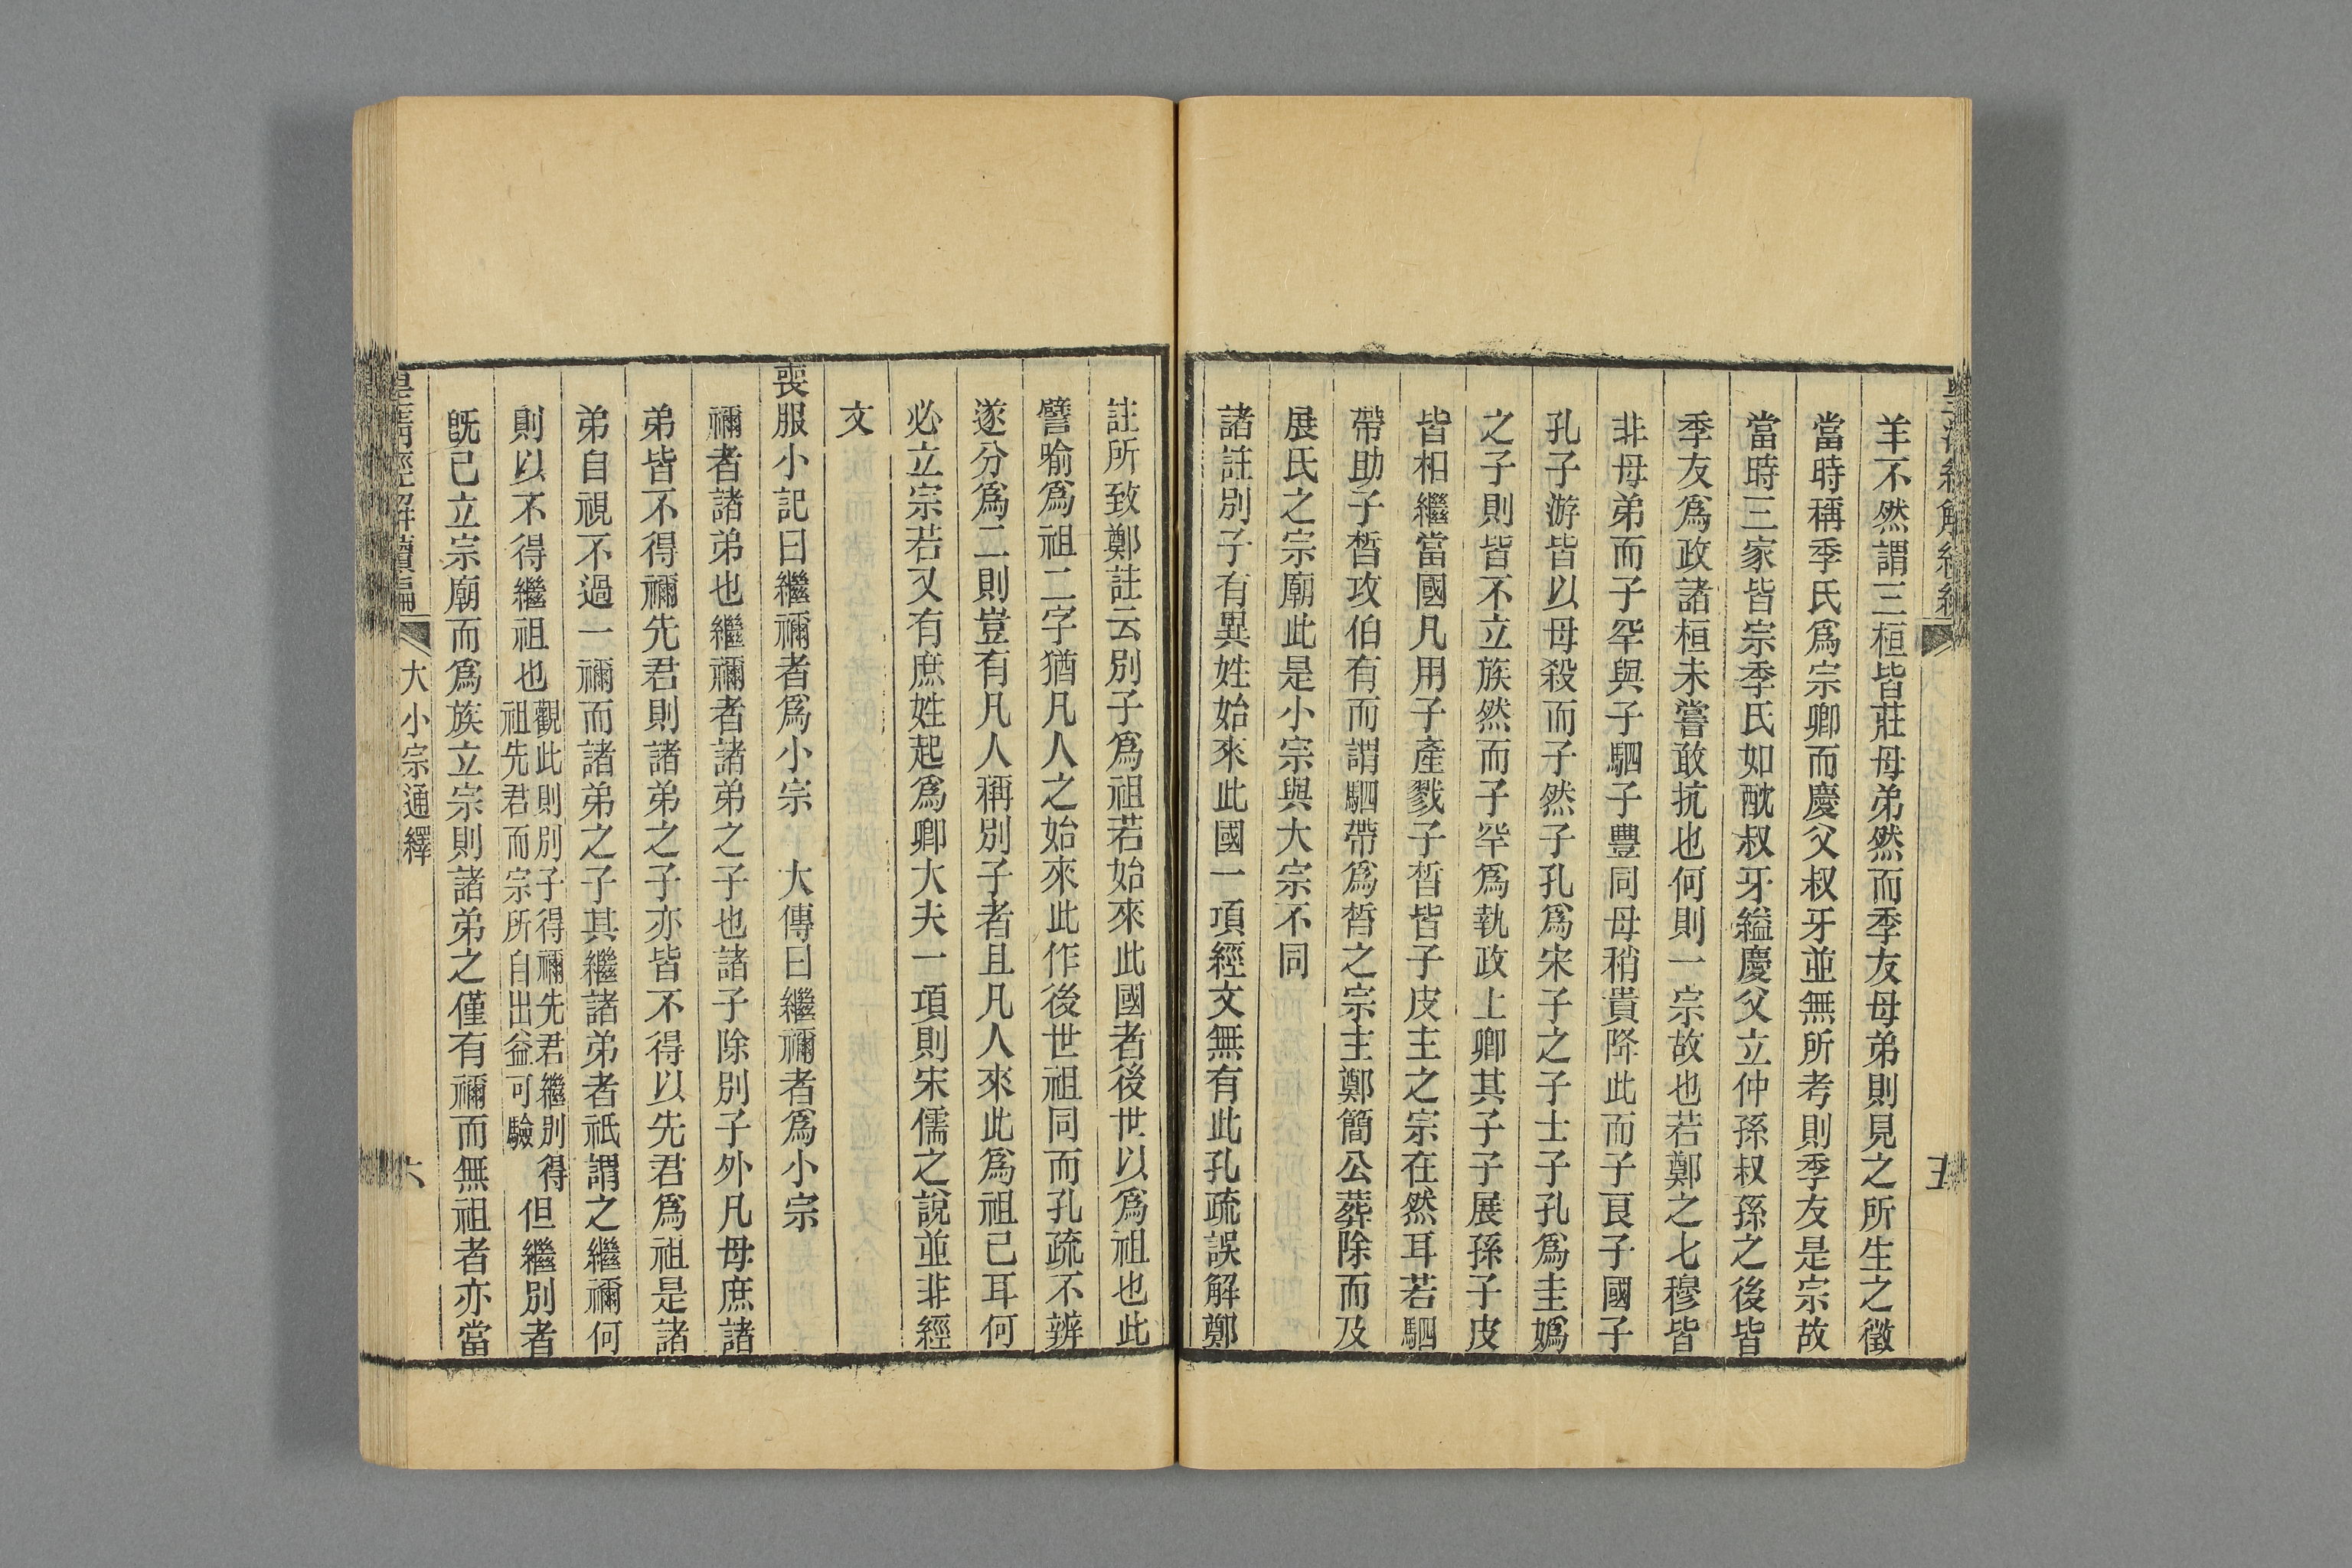 羊不然謂三桓皆莊母弟然而季友母弟則見之所生之徵
當時稱季氏爲宗卿而慶父叔牙並無所考則季友是宗故
當時三家皆宗季氏如酖叔牙縊慶父立仲孫叔孫之後皆
季友爲政諸桓未嘗敢抗也何則一宗故也若鄭之七穆皆
非母弟而子罕與子駟子豐同母稍貴降此而子良子國子
孔子游皆以母殺而子然子孔爲宋子之子士子孔爲圭嬀
之子則皆不立族然而子罕爲執政上卿其子子展孫子皮
皆相繼當國凡用子產戮子晳皆子皮主之宗在然耳若駟
帶助子晳攻伯有而謂駟帶爲晳之宗主鄭簡公葬除而及
展氏之宗廟此是小宗與大宗不同
諸註別子有異姓始來此國一項經文無有此孔疏誤解鄭
註所致鄭註云別子爲祖若始來此國者後世以爲祖也此
譬喻爲祖二字猶凡人之始來此作後世祖同而孔疏不辨
遂分爲二則豈有凡人稱別子者且凡人來此爲祖已耳何
必立宗若又有庶姓起爲卿大夫一項則宋儒之說並非經
文
喪服小記曰繼禰者爲小宗　大傳曰繼禰者爲小宗
禰者諸弟也繼禰者諸弟之子也諸子除別子外凡母庶諸
弟皆不得禰先君則諸弟之子亦皆不得以先君爲祖是諸
弟自視不過一禰而諸弟之子其繼諸弟者祇謂之繼禰何
則以不得繼祖也觀此則別子得禰先君繼別得祖先君而宗所自出益可驗但繼別者
旣已立宗廟而爲族立宗則諸弟之僅有禰而無祖者亦當
皇淸經解續編
大小宗通繹
六